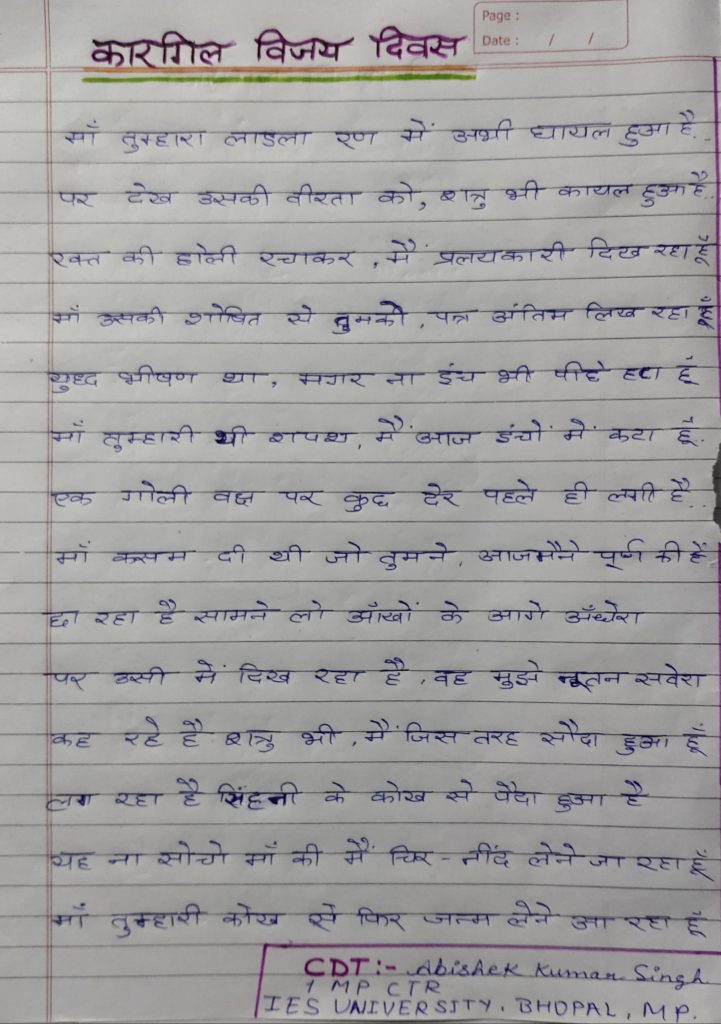 Page :
Date : / /
कारगिल विजय दिवस
माँ तुम्हारा लाडला रण में अभी घायल हुआ है..
पर देख उसकी वीरता को, शत्रु भी कायल हुआ है..
रक्त की होली रचाकर, मैं प्रलयकारी दिख रहा हूँ
माँ उसकी शोषित से तुमको, पत्र अंतिम लिख रहा हूँ
युध्द भीषण था, मगर ना इंच भी पीछे हटा हूँ
माँ तुम्हारी थी शपथ, मैं आज इंचों में कटा हूँ.
एक गोली वक्ष पर कुछ देर पहले ही लगी है..
माँ कसम दी थी जो तुमने, आजमैने पूर्ण की है
छा रहा है सामने लो आँखों के आगे अँधेरा
पर उसी में दिख रहा है, वह मुझे नूतन सवेरा
कह रहे है शत्रु भी, मैं जिस तरह सौदा हुआ हूँ
लग रहा है सिंहनी के कोख से पैदा हुआ है
यह ना सोचो माँ की मैं चिर - नींद लेने जा रहा हूँ
माँ तुम्हारी कोख से फिर जन्म लेने आ रहा हूँ
CDT:- Abishek Kumar Singh
1 MP CTR
IES UNIVERSITY, BHOPAL, MP.